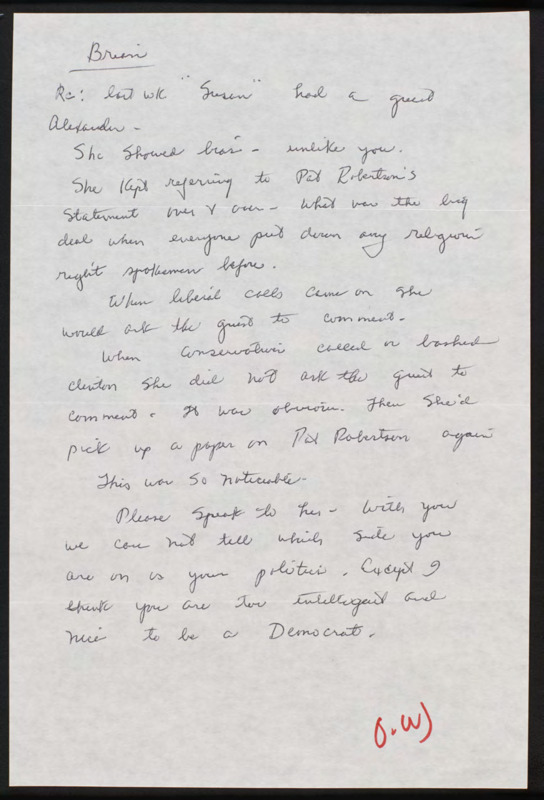 Brian
Re: last wk "Susan" had a guest
Alexander -
She showed bias - unlike you.
She kept referring to Pat Robertson's
statement over & over - What was the big
deal when everyone put down any religious
right spokesman before.
When liberal calls came on she
would ask the guest to comment.
When conservatives called or bashed
Clinton she did not ask the guest to
comment. It was obvious. Then she'd
pick up a paper on Pat Robertson again
This was so noticeable.
Please speak to her - With you
we can not tell which side you
are on as your politics. Except I
think you are too intelligent and
nice to be a Democrat.